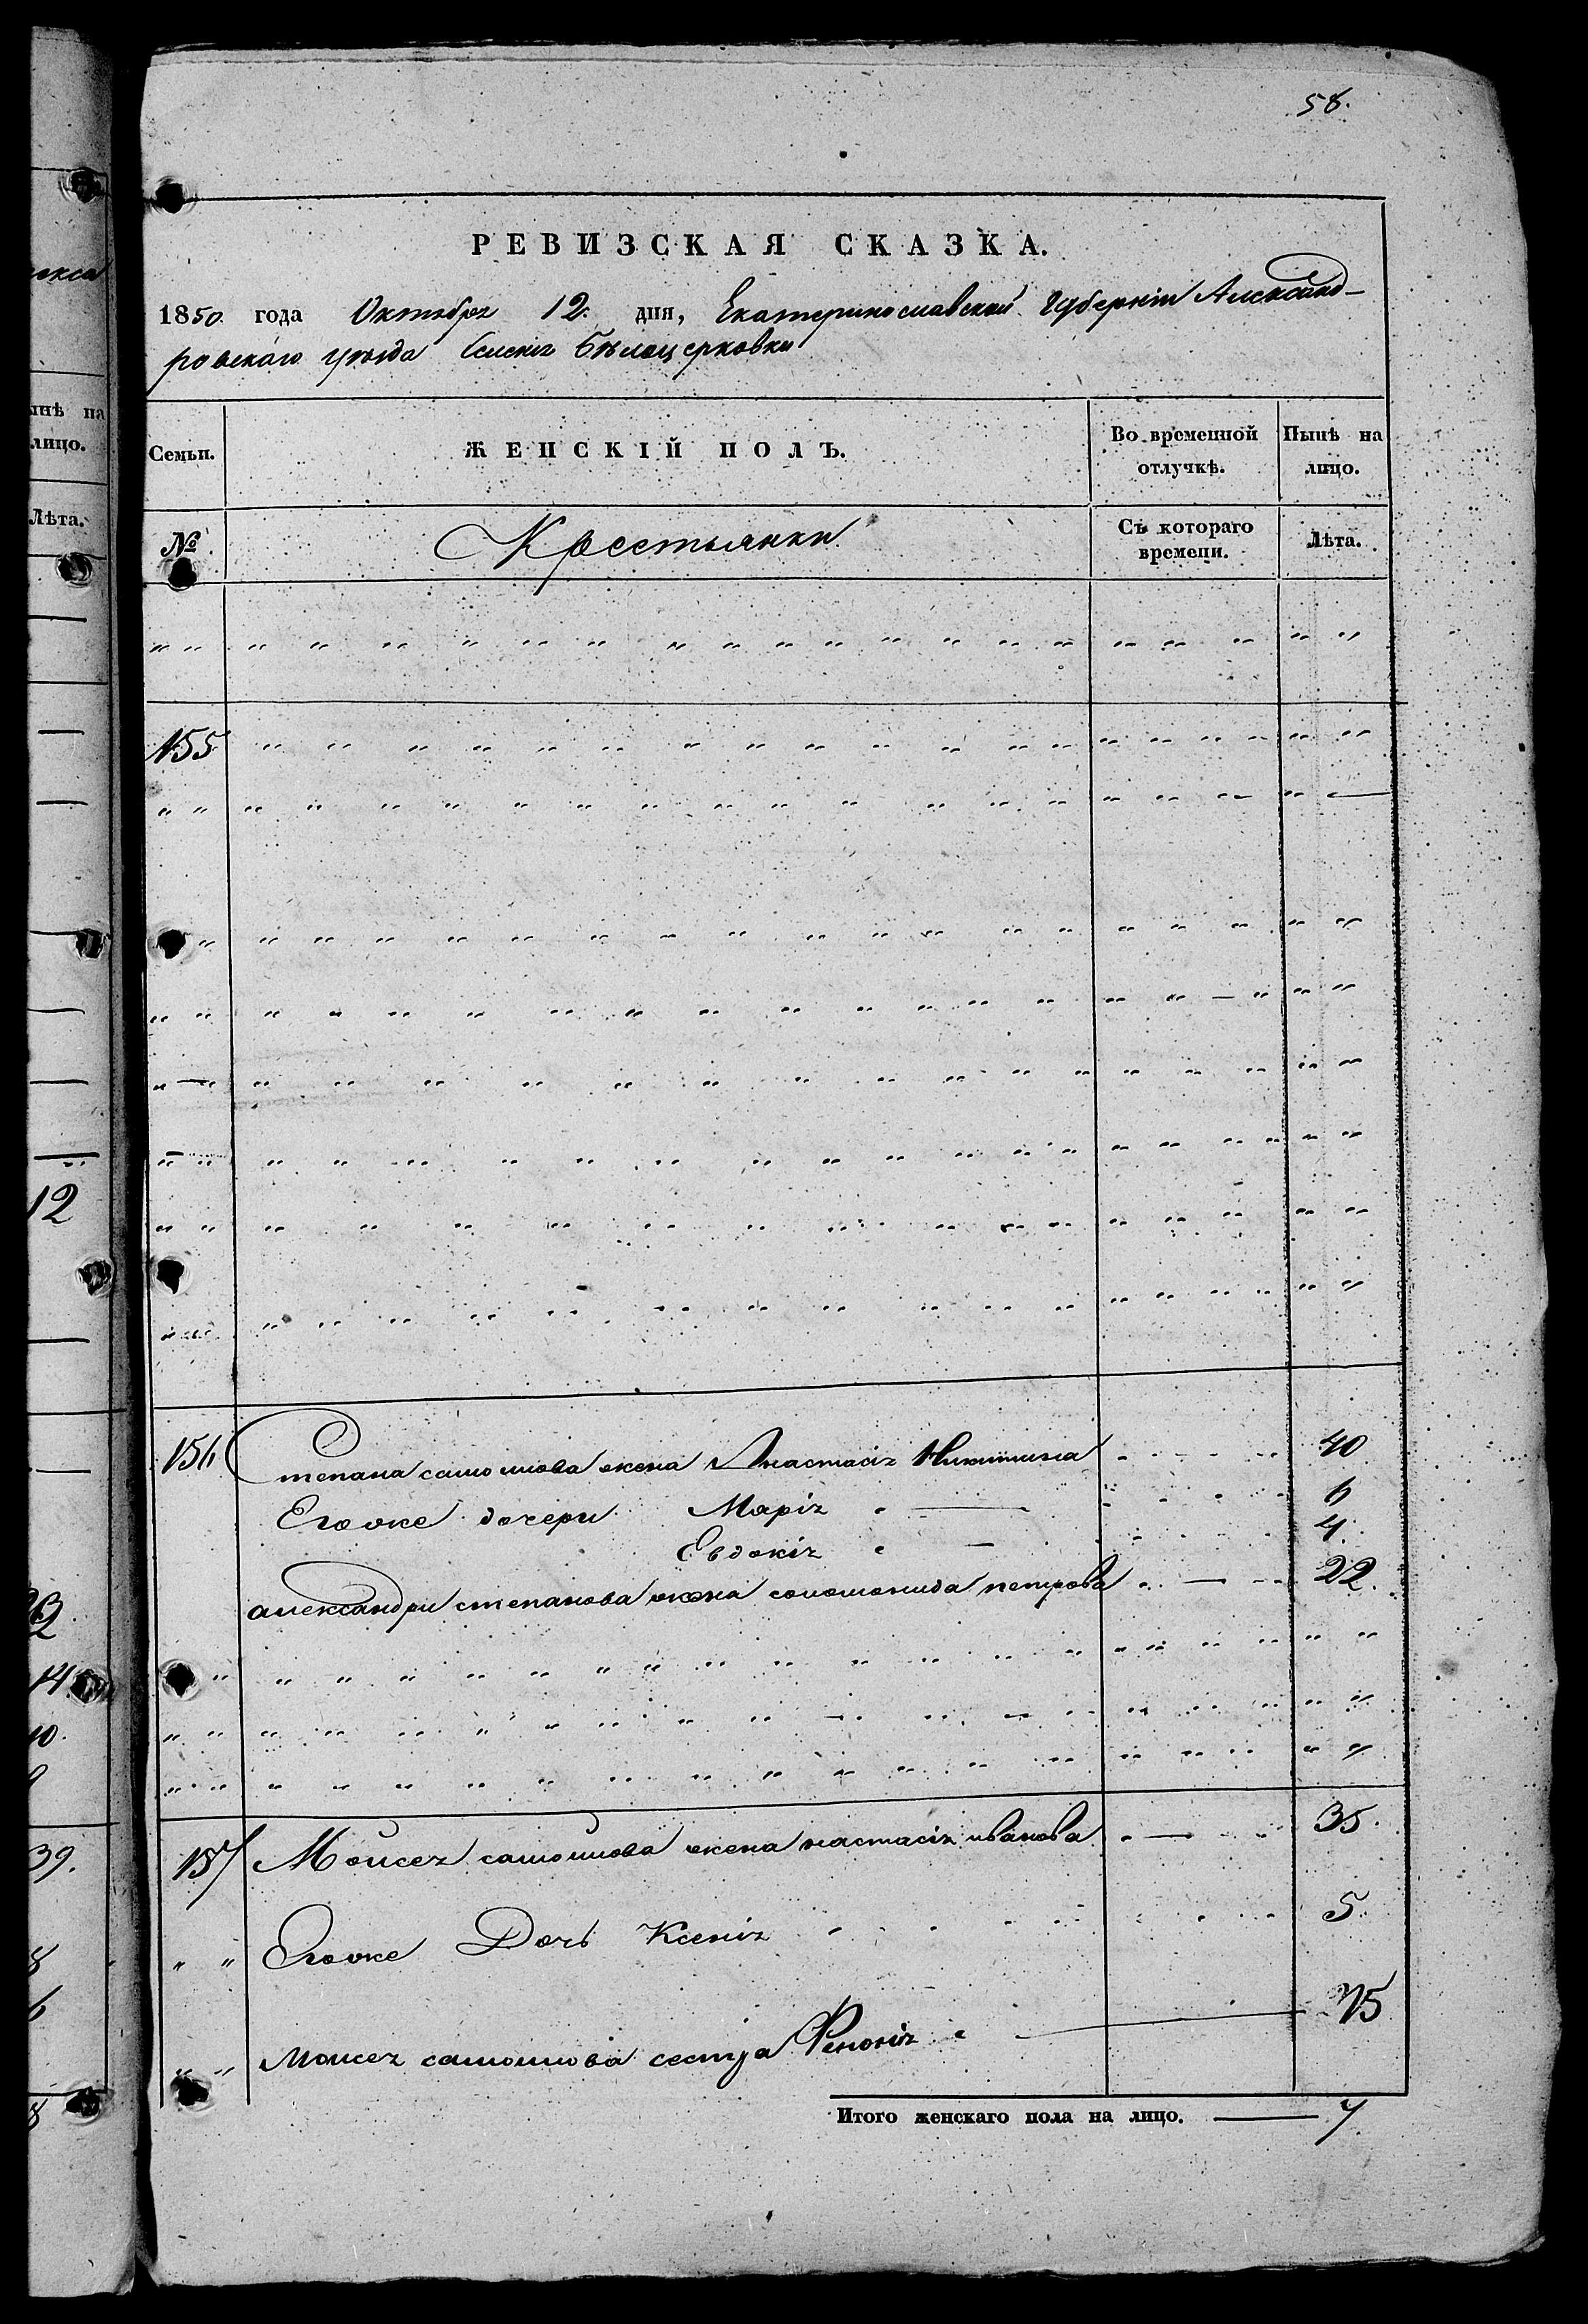 58.
РЕВИЗСКАЯ СКАЗКА.
1850. года Октября 12. дня, Екатеринославской Губерніи Александ-
ровскаго уѣзда Селенія Бѣлоцерковки
Семьи. ЖЕНСКІЙ ПОЛЪ. Во временной отлучкѣ. Нынѣ на лицо.
№ Крестьянки Съ котораго времени. Лѣта.
155
156 Степана самойлова жена Анастасія Никитина 40
Егоже дочери Марія 6
Евдокія 4.
александры степанова жена соломонида петрова 22.
157 Моисея самойлова жена настасія иванова 35.
Егоже Дочь Ксенія 5.
Моисея самойлова сестра 15
Итого женскаго пола на лицо. 7.
нынѣ на
лицо.
Лѣта.
12
14
10.
39.